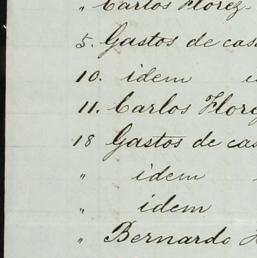 " Carlos Florez
5. Gastos de cas
10. idem
11. Carlos Flor
18 Gastos de cas
" idem
" idem
" Bernardo